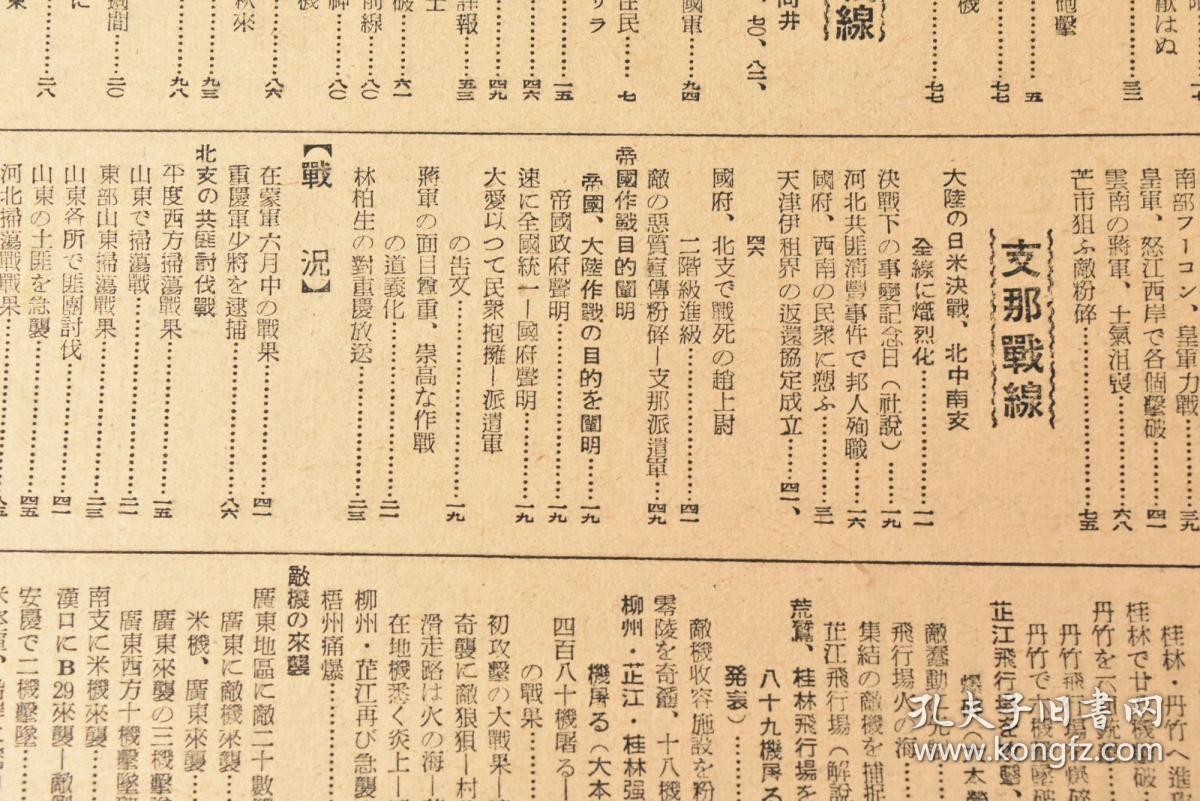 線
向井
、七〇、八二、
機
砲擊
献はぬ
リラ
住民
七
國軍
九四
七七
七七
五
三二
詳報
五三
四九
四六
一五
破
六一
前線
八〇
八〇
秋來
九三
八六
週間
二〇
九八
二八
南部フーコン、皇軍力戰……三九
皇軍、怒江西岸で各個擊破……四一
雲南の蔣軍、士氣沮喪……六八
芒市狙ふ敵粉碎……七五
支那戰線
大陸の日米決戰、北中南支
全線に熾烈化……一一
決戰下の事變記念日(社說)……一九
河北共匪淸豐事件で邦人殉職……一六
國府、西南の民衆に愬ふ……三一
天津伊租界の返還協定成立……四一、
四六
國府、北支で戰死の趙上尉
二階級進級……四一
敵の惡質宣傳粉碎―支那派遣軍…四九
帝國作戰目的闡明
帝國、大陸作戰の目的を闡明……一九
帝國政府聲明……一九
速に全國統一―國府聲明……一九
大愛以つて民衆抱擁―派遣軍
の告文……一九
蔣軍の面目尊重、崇高な作戰
の道義化……二一
林柏生の對重慶放送……二三
【戰況】
在蒙軍六月中の戰果……四一
重慶軍少將を逮捕……八六
北支の共匪討伐戰
平度西方掃蕩戰果……一五
山東で掃蕩戰……二一
東部山東掃蕩戰果……二三
山東各所で匪團討伐……四一
山東の土匪を急襲……四五
河北掃蕩戰戰果……八五
桂林・丹竹へ進攻
桂林で廿一機擊破
丹竹を
丹竹飛
丹竹で
芷江飛行場を
敵蠢動
飛行場火の海
集結の敵機を捕捉
芷江飛行場(解說
荒鷲、桂林飛行場を
八十九機屠る
發表)……
敵機收容施設を粉
零陵を奇襲、十八機
柳州・芷江・桂林强
機屠る(大本
四百八十機屠る―
の戰果……
初攻擊の大戰果―
奇襲に敵狼狽―村
滑走路は火の海―
在地機悉く炎上―
柳州・芷江再び急襲
梧州痛爆……
敵機の來襲
廣東地區に敵二十數機
廣東に敵機來襲……
米機、廣東來襲……
廣東來襲の三機擊
廣東西方十機擊墜
南支に米機來襲……
漢口にB29來襲―敵
安慶で二機擊墜……
孔夫子旧书网
www.kongfz.com